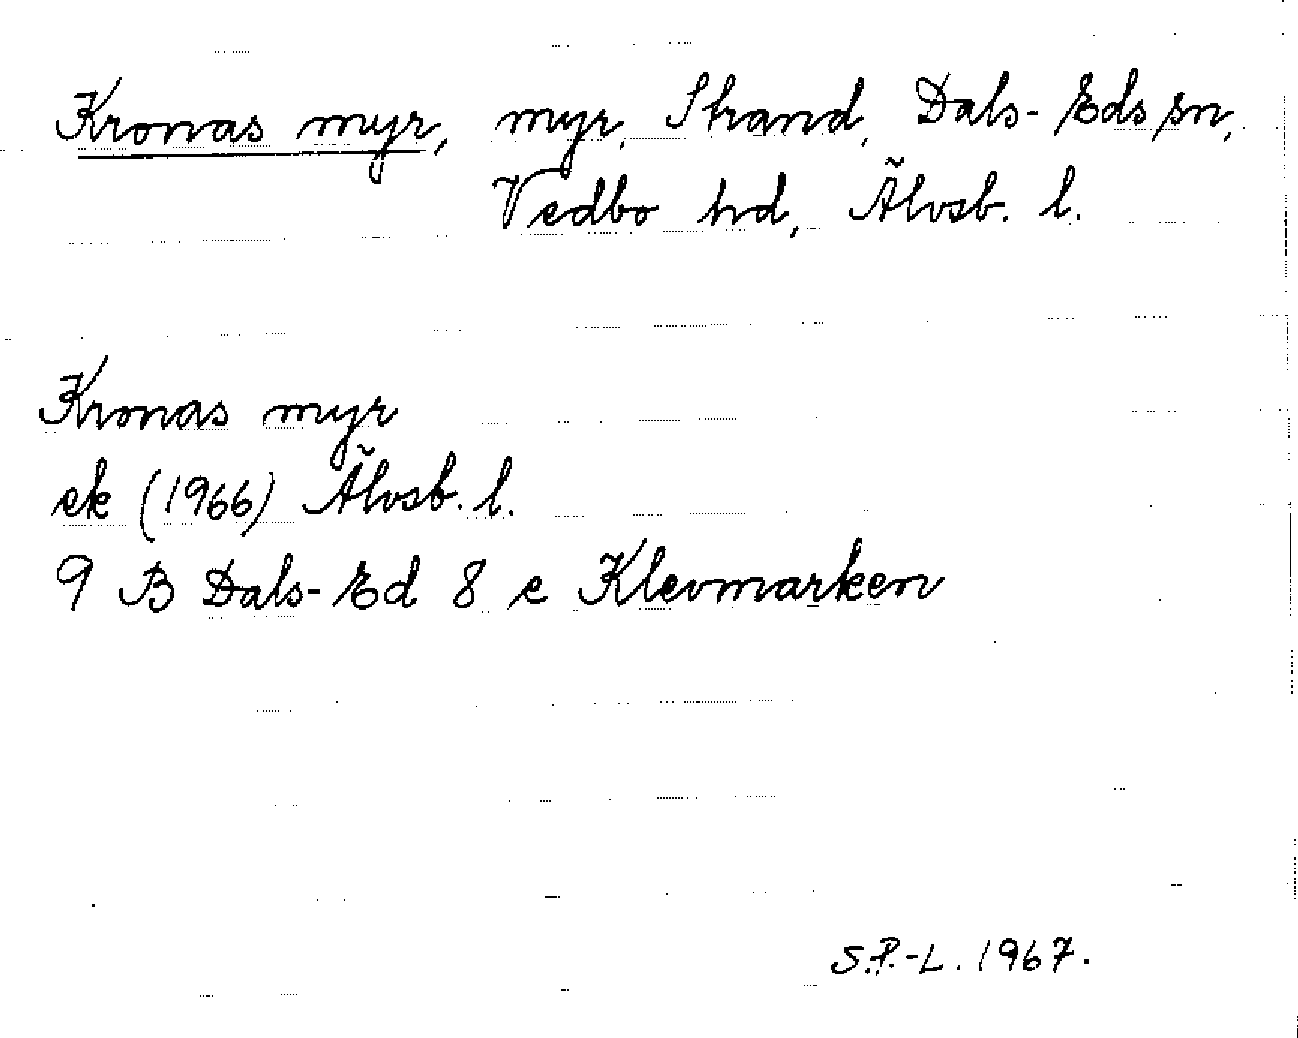 Kronas myr, myr, Strand, Dals-Eds sn,
Vedbo hd, Älvsb. l.
Kronas myr
ek (1966) Älvsb. l.
9 B Dals-Ed 8 e Klevmarken
S.P.-L. 1967.